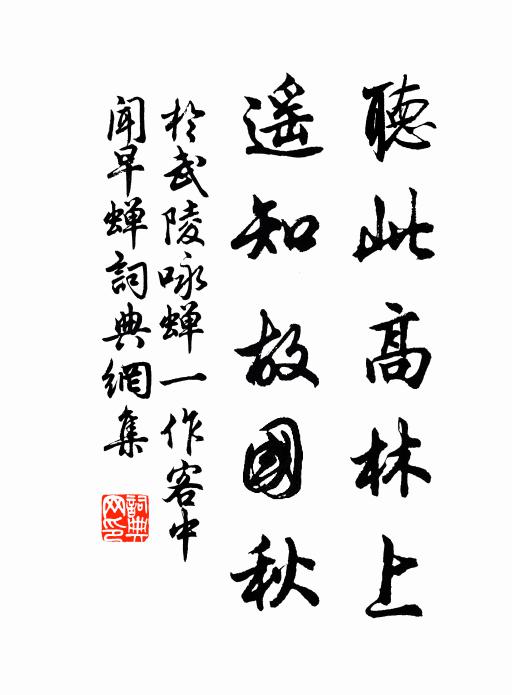 聽此高林上
遥知故國秋
於武陵咏蟬一作客中
聞早蟬詞典網集
詞典
网印